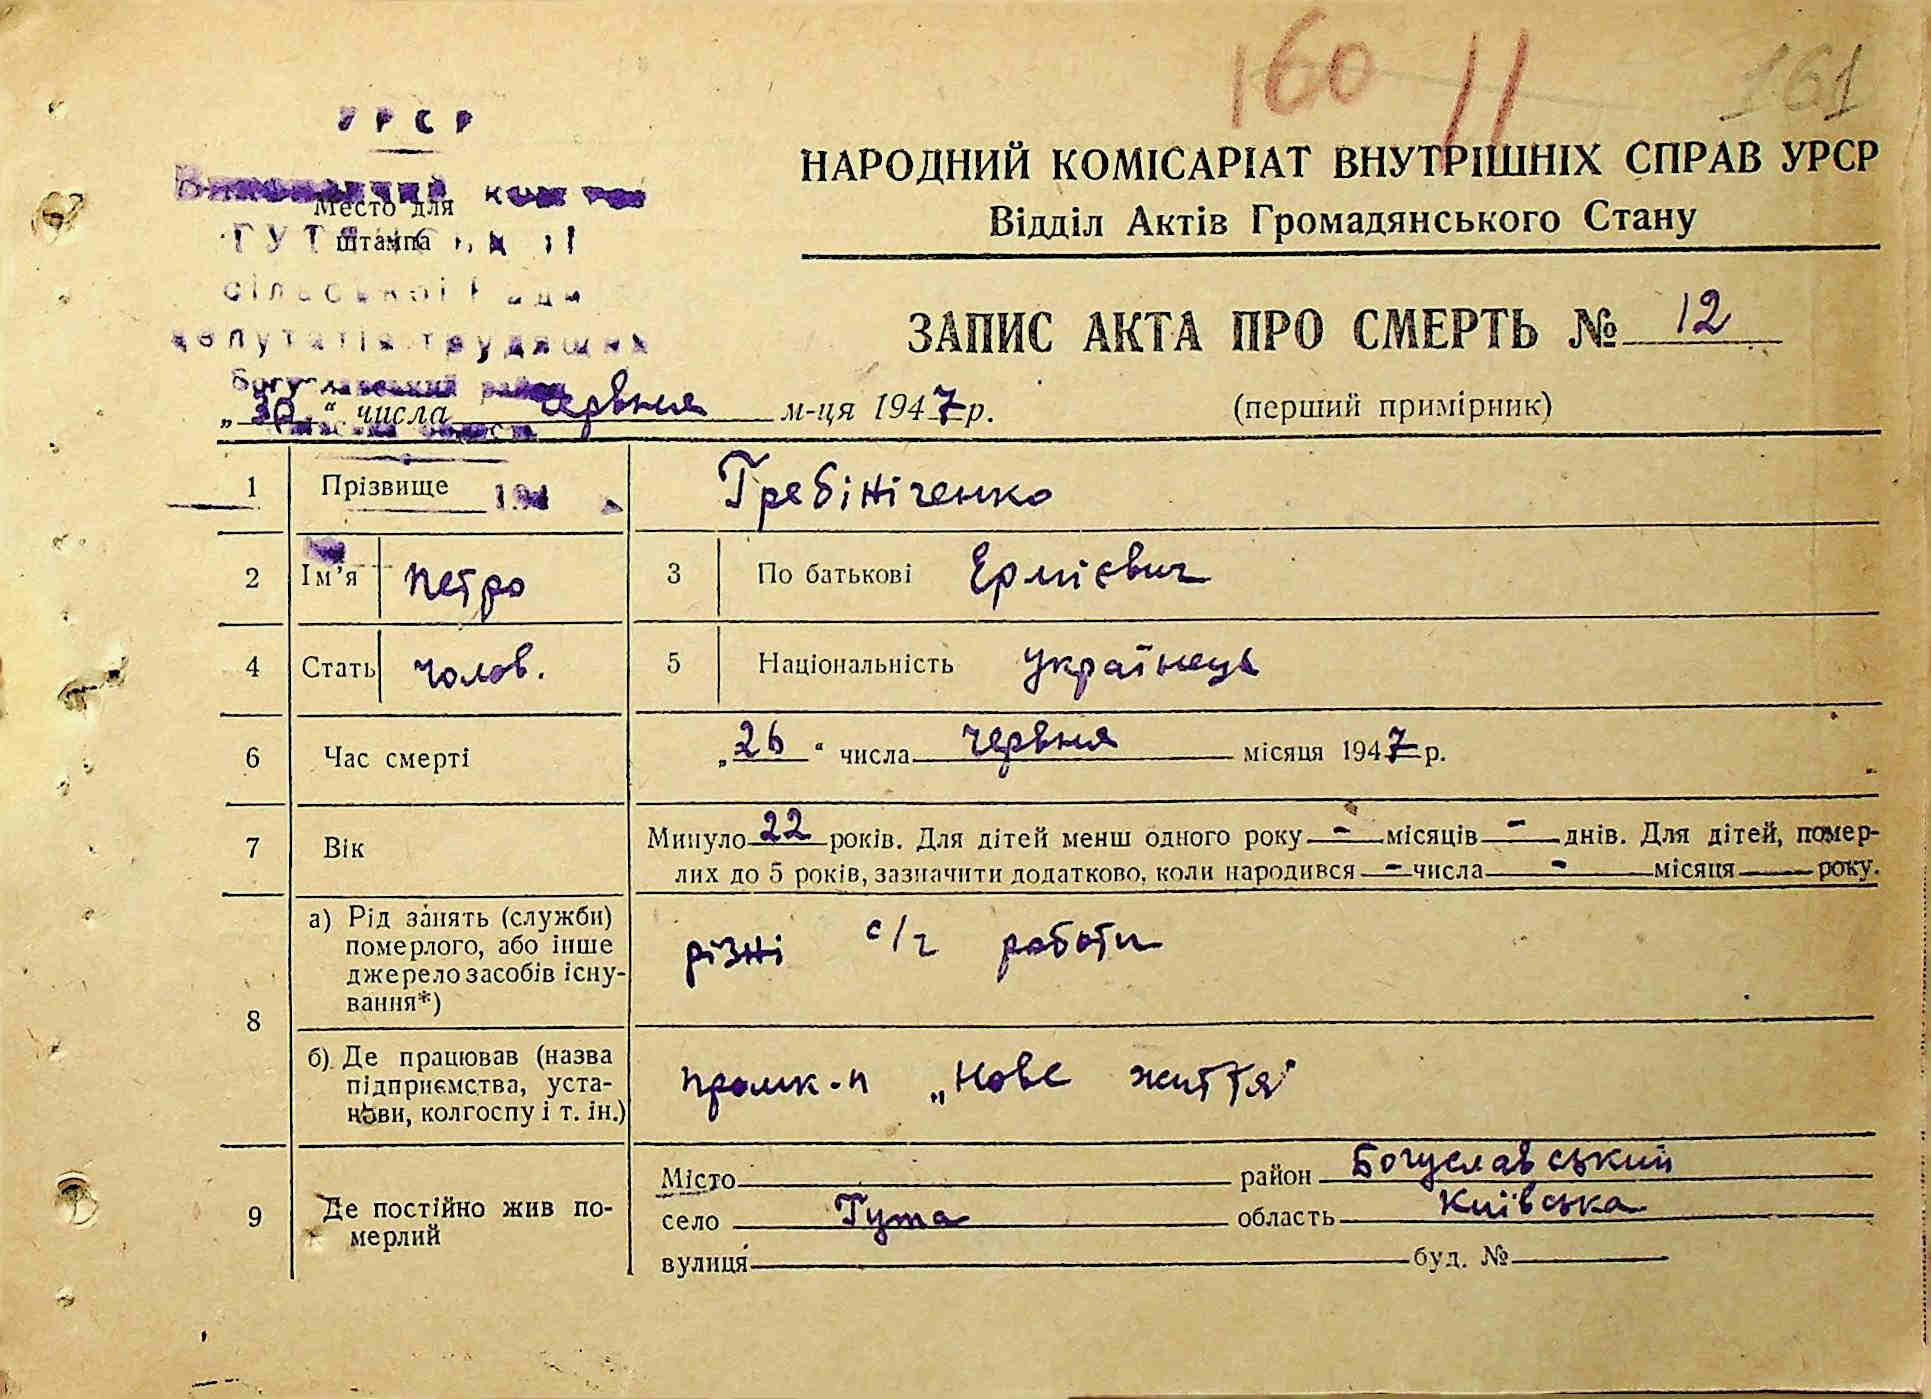 160 11 161
УРСР
НАРОДНИЙ КОМІСАРІАТ ВНУТРІШНІХ СПРАВ УРСР
Відділ Актів Громадянського Стану
Место для
штампа
сільської Ради
депутатів трудящих
Богуславський район
ЗАПИС АКТА ПРО СМЕРТЬ № 12
(перший примірник)
„30“ числа червня м-ця 1947 р.
1 Прізвище 194 Гребініченко
2 Ім'я Петро 3 По батькові Ермієвич
4 Стать чолов. 5 Національність українець
6 Час смерті „26“ числа червня місяця 1947 р.
7 Вік Минуло 22 років. Для дітей менш одного року - місяців - днів. Для дітей, помер-
лих до 5 років, зазначити додатково, коли народився - числа - місяця року.
8 а) Рід занять (служби)
померлого, або інше
джерело засобів існу-
вання*)
різні с/г роботи
б) Де працював (назва
підприємства, уста-
нови, колгоспу і т. ін.)
промк-п „Нове життя"
9 Де постійно жив по-
мерлий
Місто район Богуславський
село Гута область Київська
вулиця буд. №